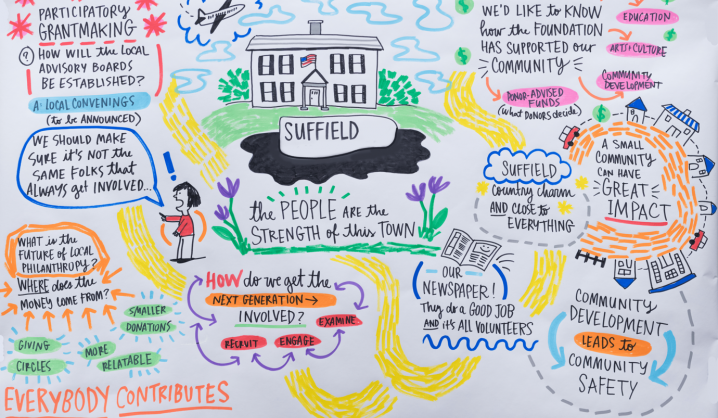 PARTICIPATORY
GRANTMAKING
? HOW WILL THE LOCAL
ADVISORY BOARDS
BE ESTABLISHED?
A: LOCAL CONVENINGS
(to BE ANNOUNCED)
WE SHOULD MAKE
SURE it's NOT the
SAME FOLKS that
ALWAYS get INVOLVED...
!
SUFFIELD
the PEOPLE ARE the
STRENGTH of this TOWN
WE'D LIKE to KNOW
how the FOUNDATION
HAS SUPPORTED our
COMMUNITY
EDUCATION
ARTS + CULTURE
COMMUNITY
DEVELOPMENT
DONOR-ADVISED
FUNDS
(what DONORS decide)
$
$
$
A SMALL
COMMUNITY
CAN HAVE
GREAT
IMPACT
SUFFIELD
country charm
AND close to
EVERYTHING
WHAT is the
FUTURE of LOCAL
PHILANTHROPY?
WHERE does the
MONEY COME FROM?
SMALLER
DONATIONS
GIVING
CIRCLES
MORE
RELATABLE
EVERYBODY CONTRIBUTES
HOW do we get the
NEXT GENERATION →
INVOLVED?
RECRUIT
ENGAGE
EXAMINE
OUR
NEWSPAPER!
They do a GOOD JOB
AND it's ALL VOLUNTEERS
COMMUNITY
DEVELOPMENT
LEADS to
COMMUNITY
SAFETY